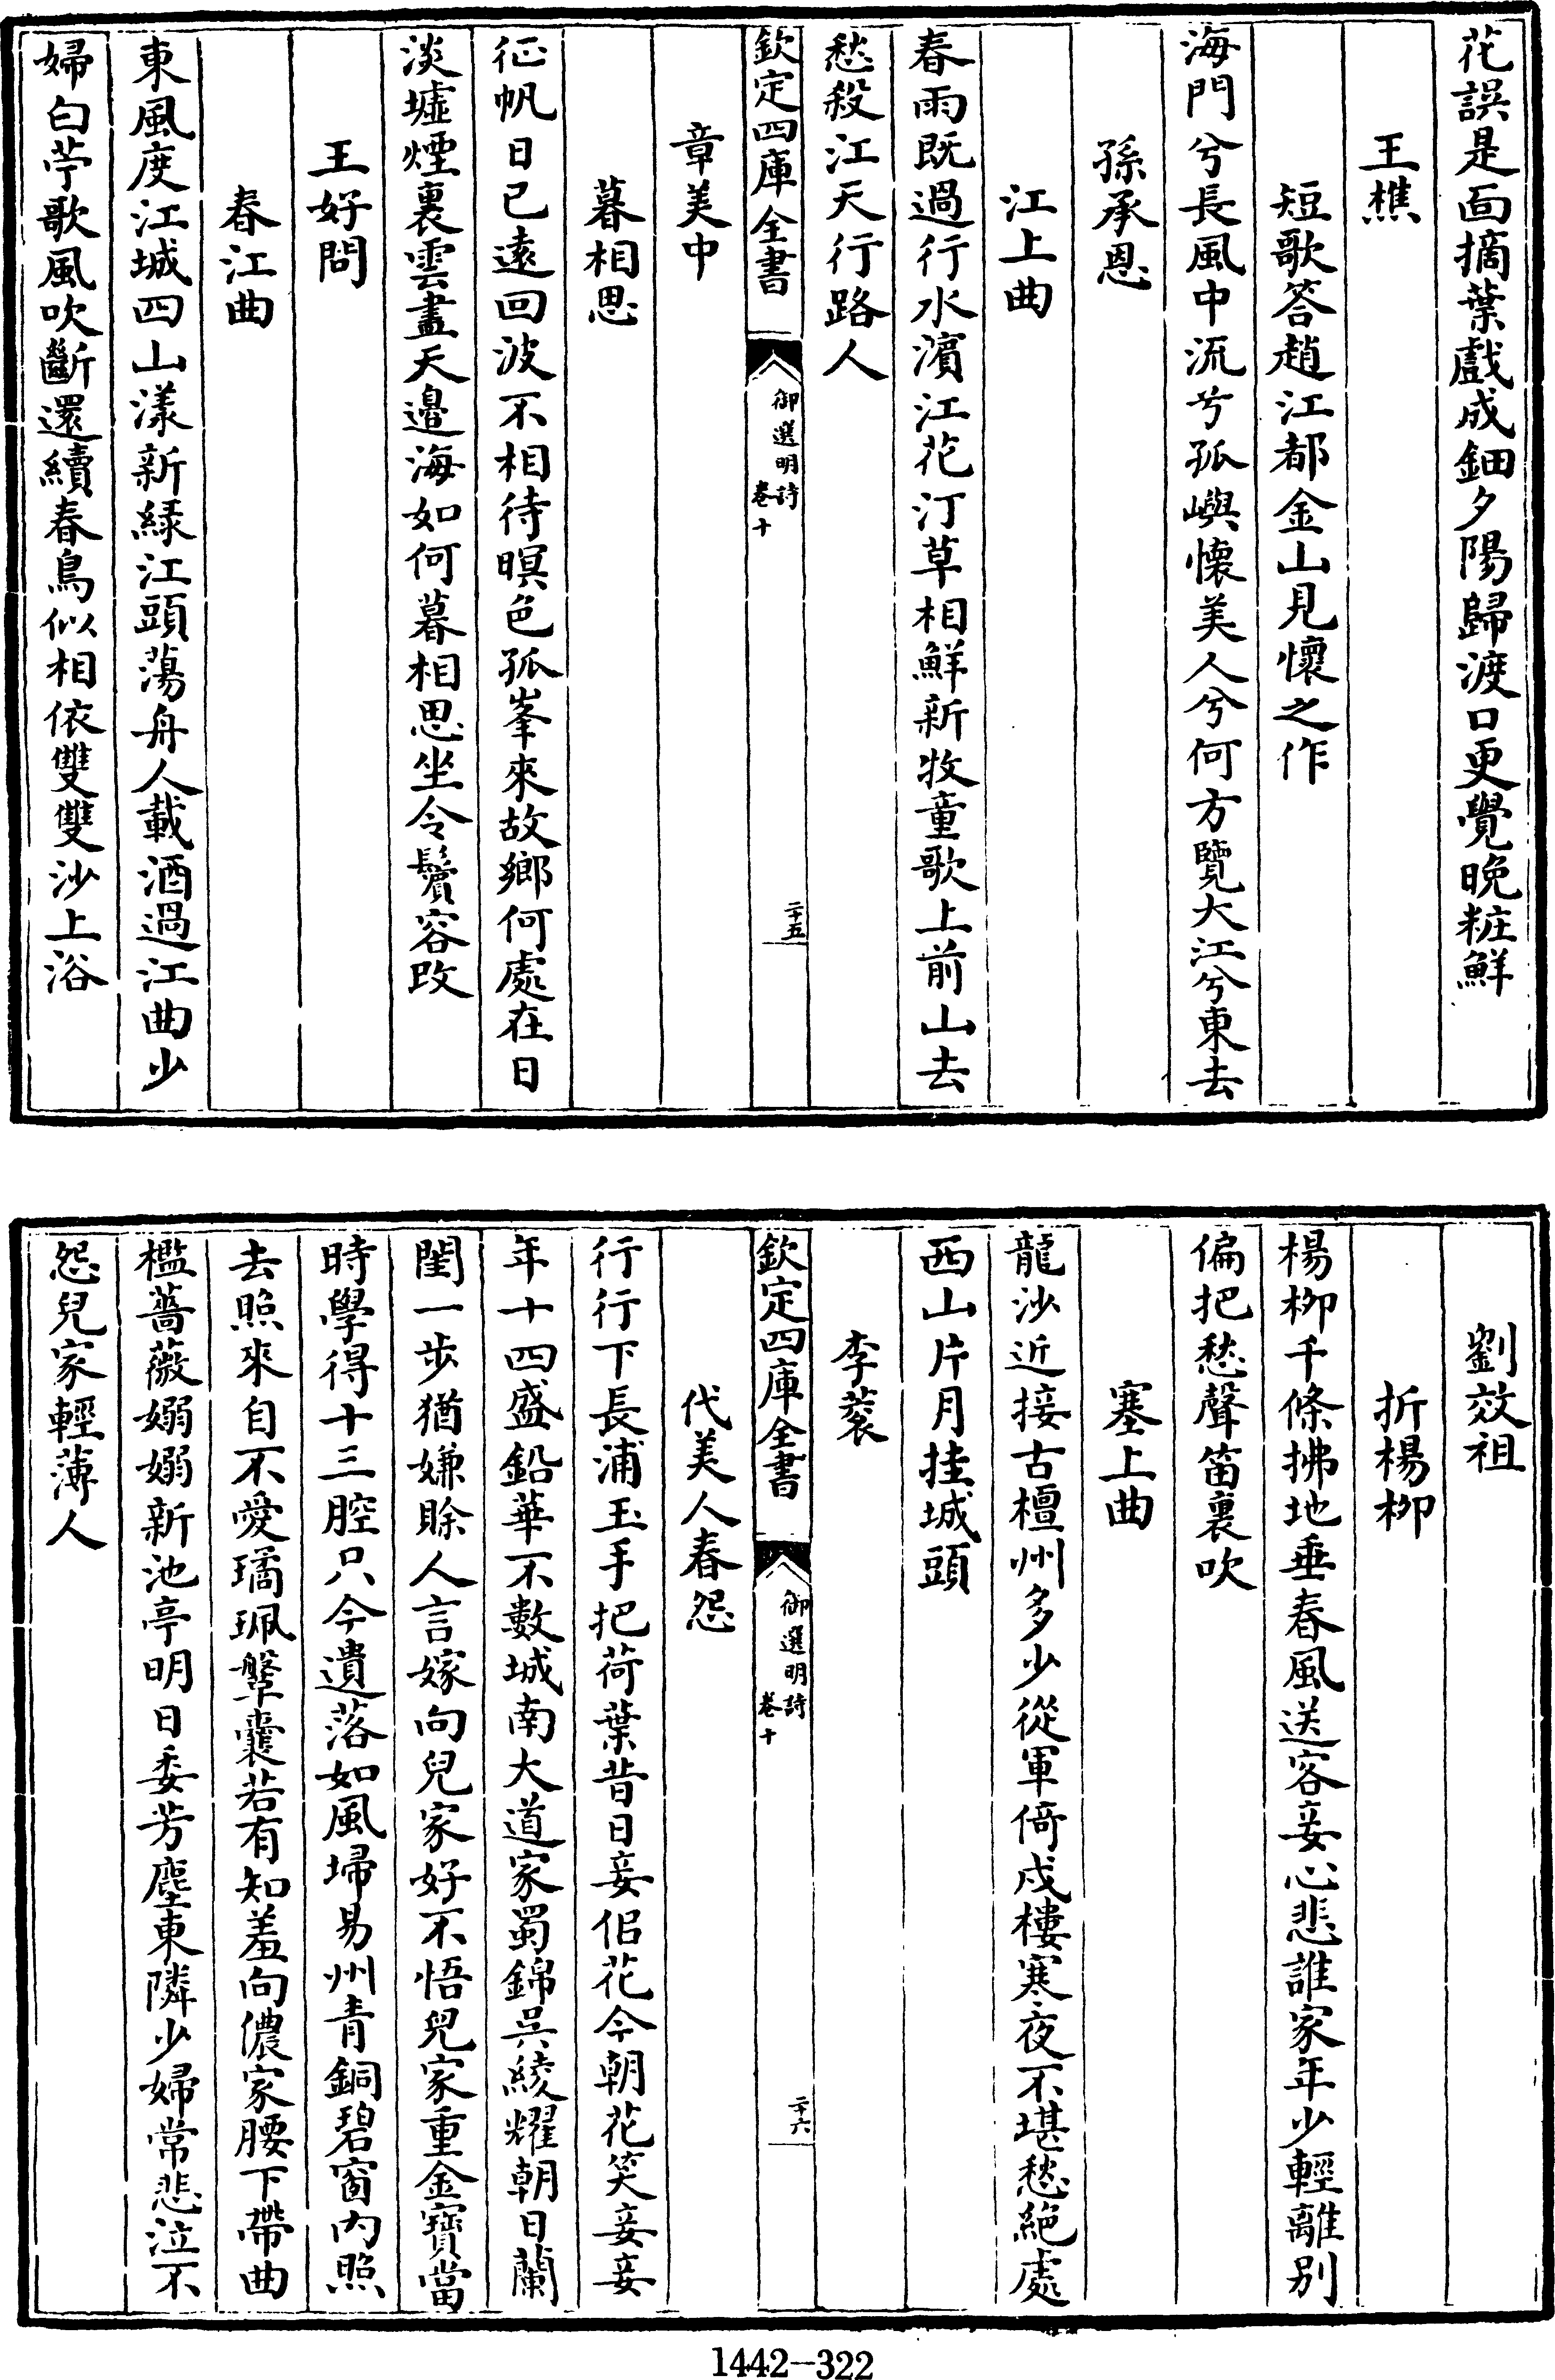 花誤是面摘葉戲成鈿夕陽歸渡口更覺晚粧鮮
王樵
短歌答趙江都金山見懷之作
海門兮長風中流兮孤嶼懷美人兮何方覽大江兮東去
孫承恩
江上曲
春雨既過行水濱江花汀草相鮮新牧童歌上前山去
愁殺江天行路人
欽定四庫全書
御選明詩
卷十
二十五
章美中
暮相思
征帆日已遠回波不相待暝色孤峯來故鄉何處在日
淡墟煙裏雲盡天邉海如何暮相思坐令鬢容改
王好問
春江曲
東風度江城四山漾新緑江頭蕩舟人載酒過江曲少
婦白苧歌風吹斷還續春鳥似相依雙雙沙上浴
劉效祖
折楊柳
楊柳千條拂地垂春風送客妾心悲誰家年少輕離别
偏把愁聲笛裏吹
塞上曲
龍沙近接古檀州多少從軍倚戍樓寒夜不堪愁絶處
西山片月挂城頭
李蓘
代美人春怨
欽定四庫全書
御選明詩
卷十
二十六
行行下長浦玉手把荷葉昔日妾侣花今朝花笑妾妾
年十四盛鉛華不數城南大道家蜀錦吳綾耀朝日蘭
閨一步猶嫌賒人言嫁向兒家好不悟兒家重金寶當
時學得十三腔只今遺落如風埽易州青銅碧窗内照
去照來自不愛璚珮鞶囊若有知羞向儂家腰下帶曲
檻薔薇嫋嫋新池亭明日委芳塵東隣少婦常悲泣不
怨兒家輕薄人
1442-322